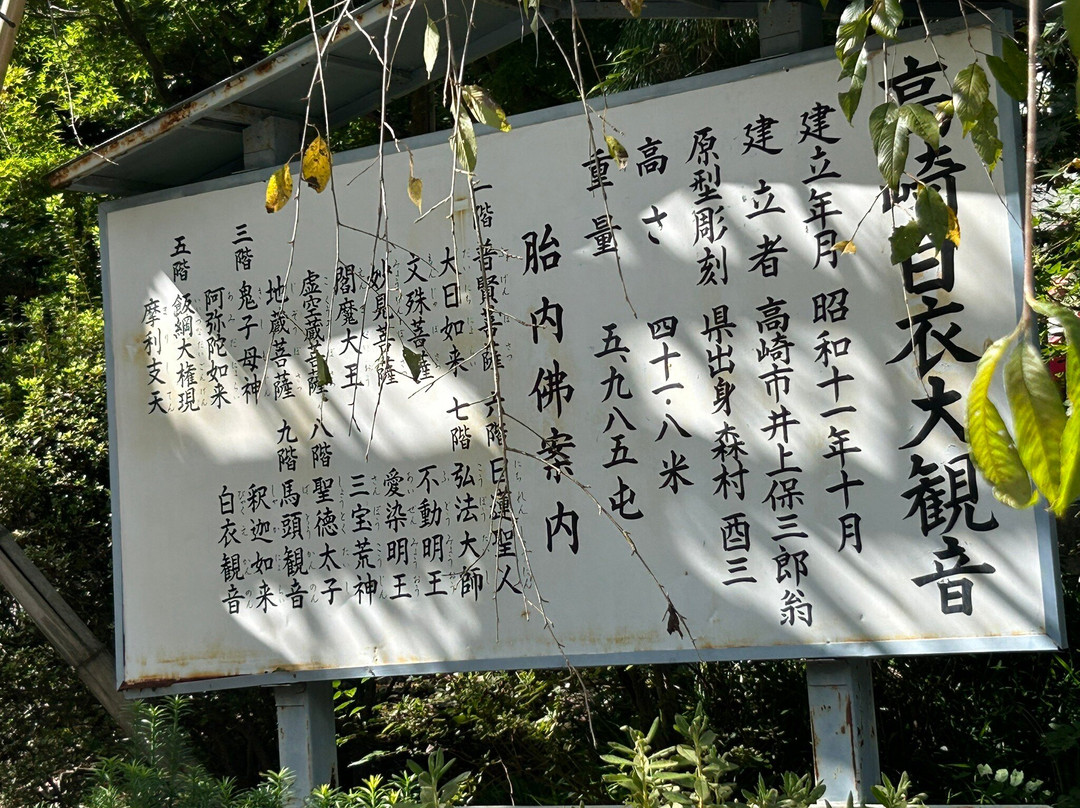 高崎白衣大観音
建立年月 昭和十一年十月
建立者 高崎市井上保三郎翁
原型彫刻 県出身 森村酉三
高さ 四十一・八米
重量 五、九八五屯
胎内佛案内
一階 普賢菩薩
大日如来
文殊菩薩
妙見菩薩
閻魔大王
虚空蔵菩薩
地蔵菩薩
三階 鬼子母神
阿弥陀如来
五階 飯綱大権現
摩利支天
六階 日蓮聖人
七階 弘法大師
不動明王
愛染明王
三宝荒神
八階 聖徳太子
九階 馬頭観音
釈迦如来
白衣観音